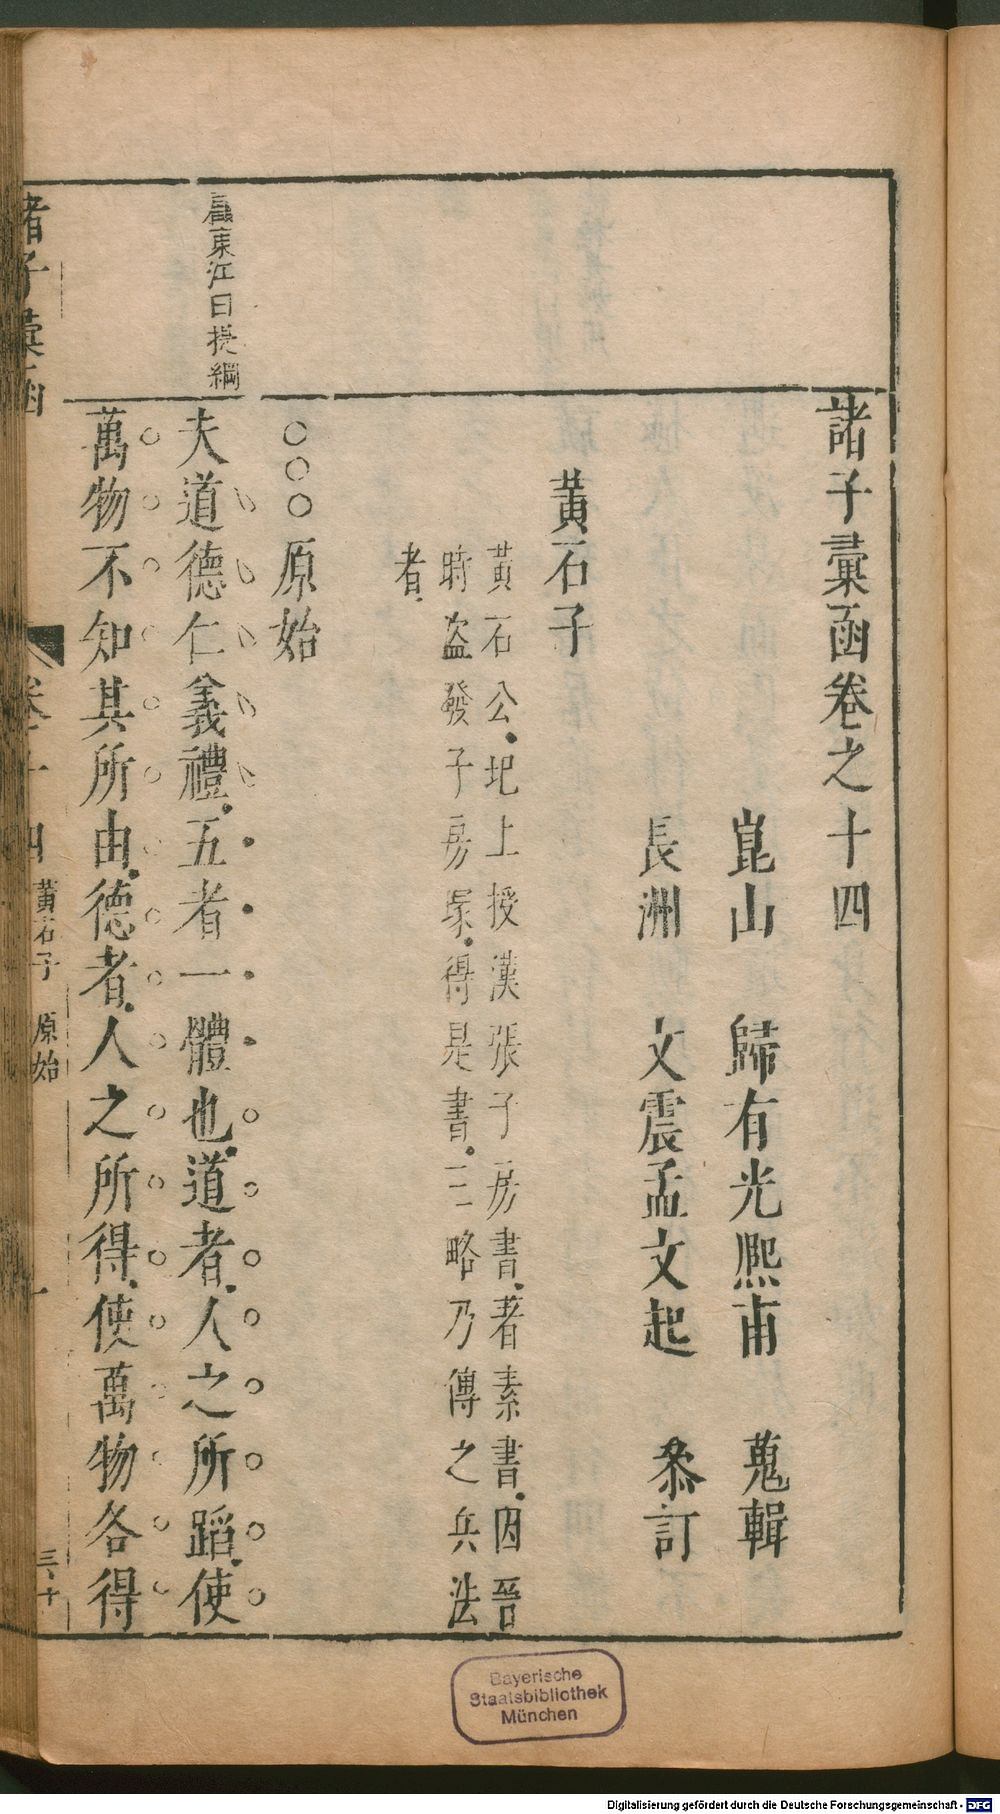 諸子彙函卷之十四
崑山 歸有光熙甫 蒐輯
長洲 文震孟文起 叅訂
黃石子
黃石公圯上授漢張子房書著素書因晉
時盜發子房塚得是書三略乃傳之兵法
者
○○○原始
顧東江曰提綱
夫道德仁義禮五者一體也道者人之所蹈使
萬物不知其所由德者人之所得使萬物各得
諸子彙函 卷十四 黃石子 原始 一
Bayerische
Staatsbibliothek
München
Digitalisierung gefördert durch die Deutsche Forschungsgemeinschaft - DFG